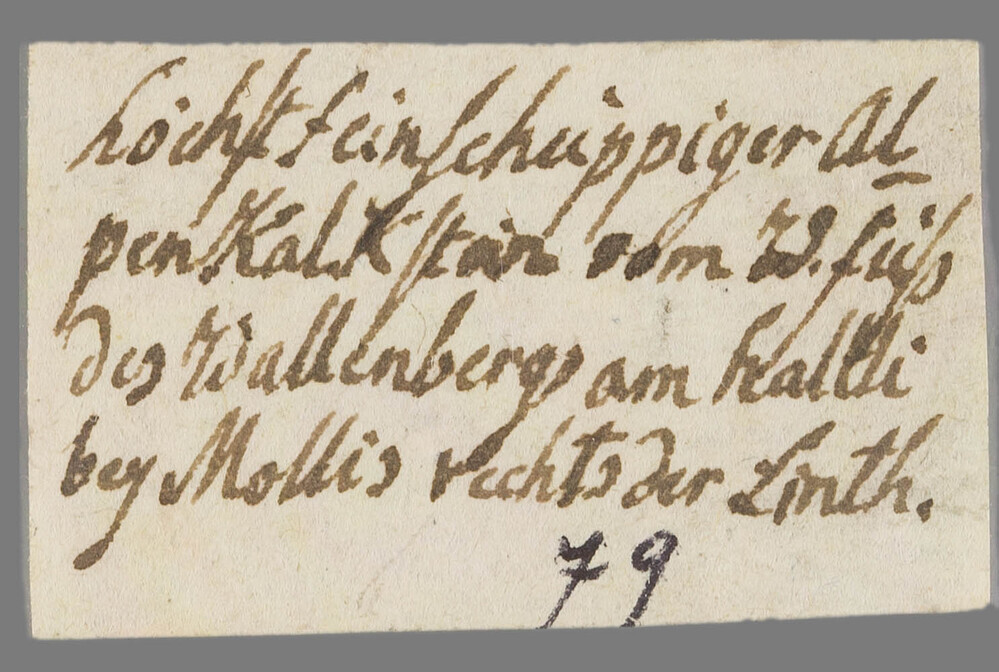 höchst feinschuppiger Al
pen Kalkstein vom W. fuß
des Wallenbergs am kaltli
bey Mollis rechts der Linth.
79